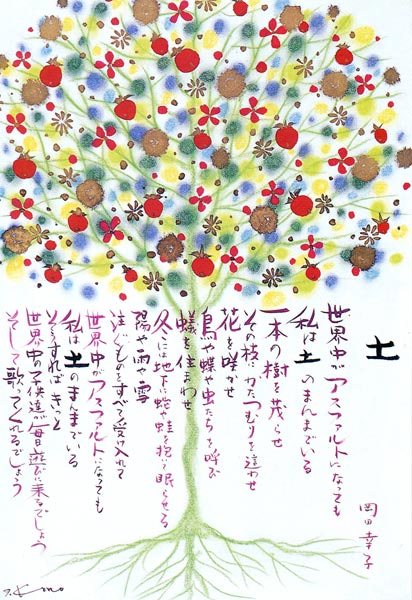 土
岡田幸子
世界中がアスファルトになっても
私は土のまんまでいる
一本の樹を茂らせ
その枝にかたつむりを這わせ
花を咲かせ
鳥や蝶や虫たちを呼び
蟻を住まわせ
冬には地下に蛇や蛙を抱いて眠らせる
陽や雨や雪
注ぐものをすべて受け入れて
世界中がアスファルトになっても
私は土のまんまでいる
そうすればきっと
世界中の子供達が毎日遊びに来るでしょう
そして歌ってくれるでしょう